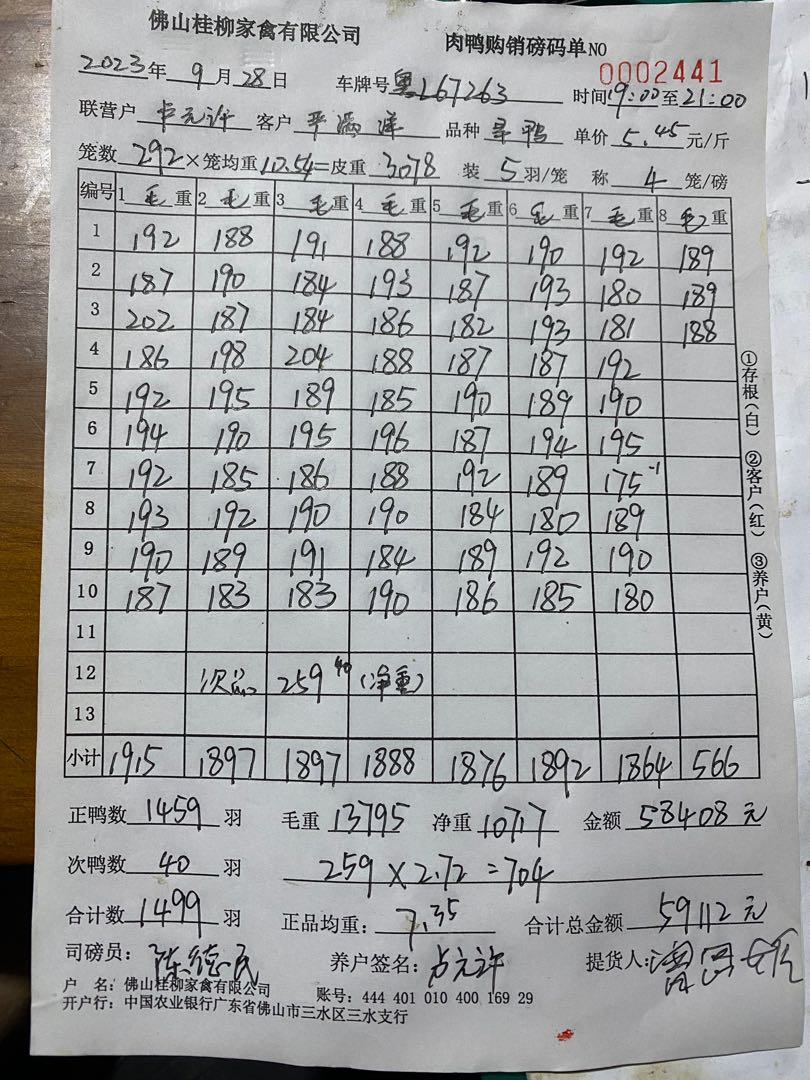 佛山桂柳家禽有限公司 肉鸭购销磅码单NO 0002441
2023年 9月 28日 车牌号 粤L67263 时间19:00至21:00
联营户 卢元许 客户 平满洋 品种 单价 5.45 元/斤
笼数 292 ×笼均重 10.54 =皮重 3078 装 5 羽/笼 称 4 笼/磅
编号 1 毛重 2 毛重 3 毛重 4 毛重 5 毛重 6 毛重 7 毛重 8 毛重
1 192 188 191 188 192 190 192 189
2 187 190 184 193 187 193 180 189
3 202 187 184 186 182 193 181 188
4 186 198 204 188 187 187 192
5 192 195 189 185 190 189 190
6 194 190 195 196 187 194 195
7 192 185 186 188 192 189 175 -1
8 193 192 190 190 184 180 189
9 190 189 191 184 189 192 190
10 187 183 183 190 186 185 180
11
12 次品 259 40 (净重)
13
小计 1915 1897 1897 1888 1876 1892 1864 566
正鸭数 1459 羽 毛重 13795 净重 10717 金额 58408 元
次鸭数 40 羽 259×2.72=704
合计数 1499 羽 正品均重: 7.35 合计总金额 59112 元
司磅员: 陈德民 养户签名: 卢元许 提货人:
户 名: 佛山桂柳家禽有限公司 账号: 444 401 010 400 169 29
开户行: 中国农业银行广东省佛山市三水区三水支行
①存根(白) ②客户(红) ③养户(黄)